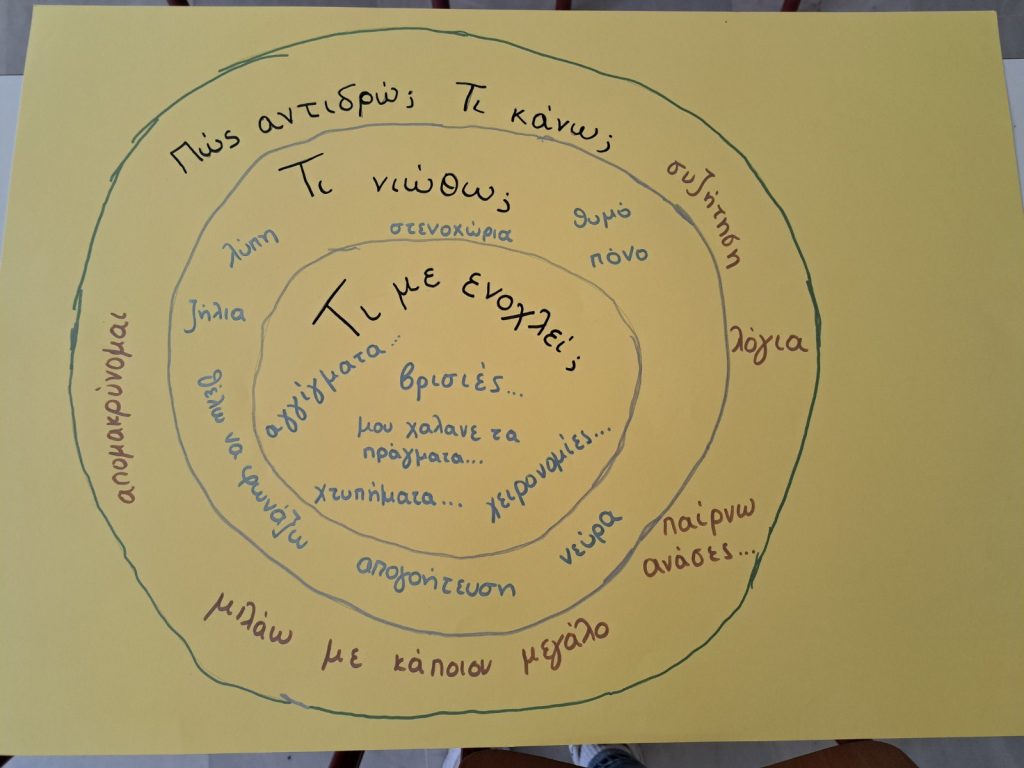 Πώς αντιδρώ; Τι κάνω;
συζήτηση
λόγια
παίρνω
ανάσες...
μιλάω με κάποιον μεγάλο
απομακρύνομαι
Τι νιώθω;
λύπη
στενοχώρια
θυμό
πόνο
ζήλια
θέλω να φωνάζω
απογοήτευση
νεύρα
Τι με ενοχλεί;
αγγίγματα...
βρισιές...
μου χαλανε τα
πράγματα...
χτυπήματα...
χειρονομίες...